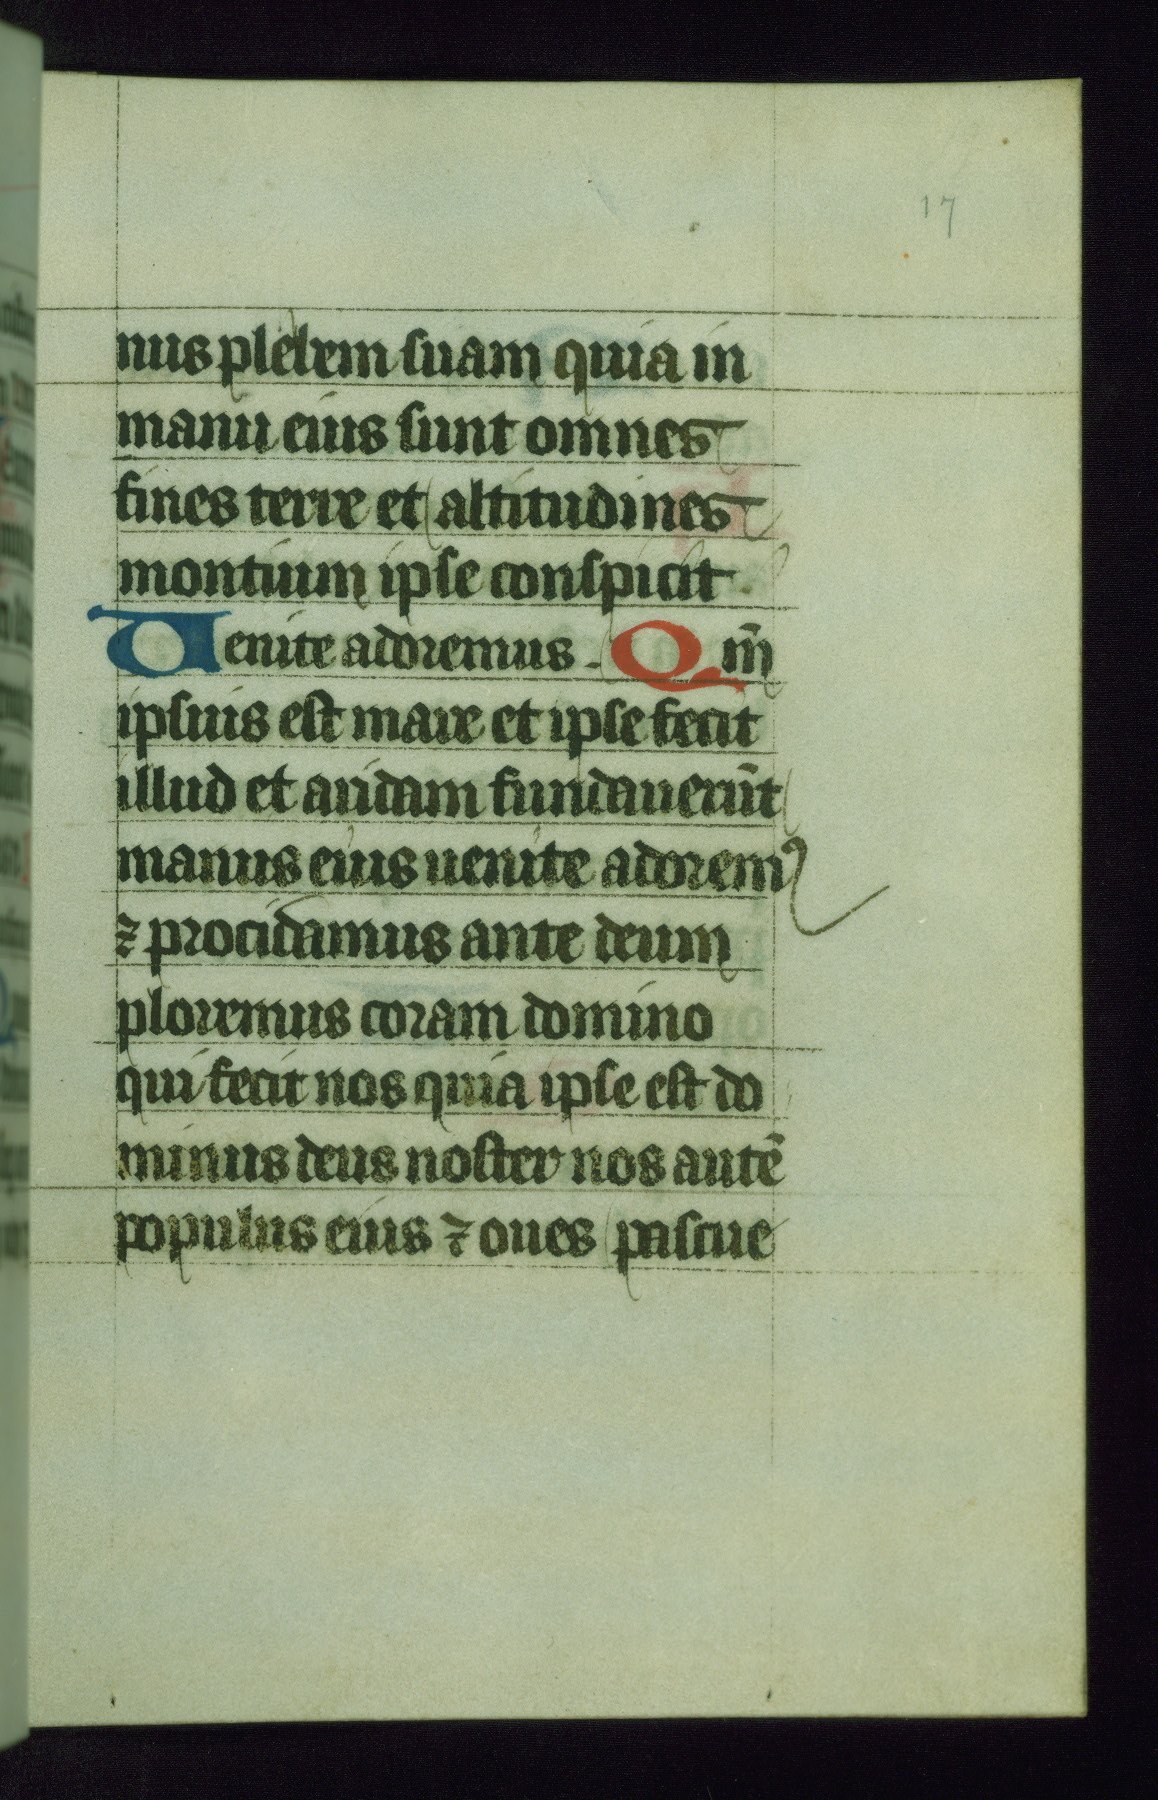 17
nus plebem suam quia in
manu eius sunt omnes
fines terre et altitudines
montium ipse conspicit.
Uenite adoremus. Qm̄
ipsius est mare et ipse fecit
illud et aridam fundauerūt
manus eius uenite adoremꝰ
⁊ procidamus ante deum
ploremus coram domino
qui fecit nos quia ipse est do
minus deus noster nos autē
populus eius ⁊ oues pascue